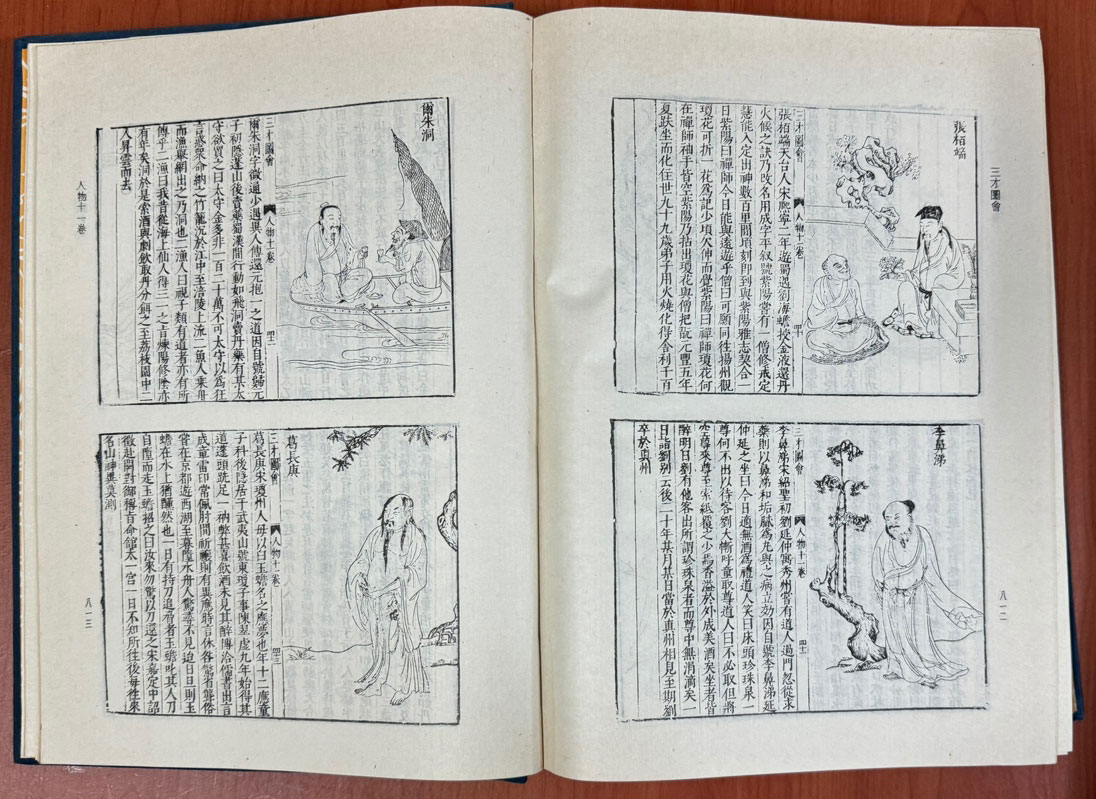 三才圖會
張栢端
三才圖會 人物十一卷 四十
張栢端天台人宋熈寧二年遊蜀遇劉海蟾授金液還丹
火候之訣乃改名用成字平叔號紫陽嘗有一僧修戒定
慧能入定出神數百里間頃刻即到與紫陽雅志契合一
日紫陽曰禪師今日能與遠遊乎僧曰可願同往揚州觀
瓊花可折一花爲記少頃欠伸而覺紫陽曰禪師瓊花何
在禪師袖手皆空紫陽乃拈出瓊花與僧把翫元豐五年
夏趺坐而化住世九十九歲弟子用火燒化得舍利千百
八一二
李鼻涕
三才圖會 人物十一卷 四十一
李鼻涕宋紹聖初劉延仲寓秀州嘗有道人過門忽從求
藥則以鼻涕和垢膩爲丸與之病立効因自號李鼻涕延
仲延之坐曰今日適無酒爲禮道人笑曰床頭珍珠泉一
尊何不出以待客劉大慚呼童取尊道人曰不必取但將
空尊來尊至索紙覆之少焉香溢於外成美酒矣坐者皆
醉明日劉有他客出所謂珍珠泉者而尊中無涓滴矣一
日詣劉别云後二十年某月某日當於真州相見至期劉
卒於真州
爾朱洞
三才圖會 人物十一卷 四十二
爾朱洞字微通少遇異人傳還元抱一之道因自號歸元
子初隱蓬山後賣藥蜀漢間行動如飛洞賣丹藥有某太
守欲買之曰太守金多非一百二十萬不可太守以爲狂
言惑衆命納之竹籠沉於江中至涪陵上流二漁人乗舟
而漁舉網出之乃洞也二漁人曰視子類有道者亦有所
傳乎二漁曰我昔從海上仙人得三一之旨煉陽修陰亦
有年矣洞於是索酒與劇飲取丹分餌之至荔枝園中二
人昇雲而去
人物十一卷
葛長庚
三才圖會 人物十一卷 四十三
葛長庚宋瓊州人毋以白玉蟾名之應夢也年十二應童
子科後隱居于武夷山號東瓊子事陳翠虚九年始得其
道蓬頭跣足一衲弊甚喜飲酒未見其醉博洽儒書出言
成章雷印常佩肘間祈禳則有異應時言休咎驚省聾俗
嘗在京都遊西湖至暮墮水舟人驚尋不見迨旦則玉
蟾在水上猶醺然也一日有持刀追脅者玉蟾叱其人刀
自墮而走玉蟾招之曰汝來勿驚以刀還之宋嘉定中詔
徵赴闕對御稱旨命館太一宮一日不知所往後毎徃來
名山神異莫測
八一三